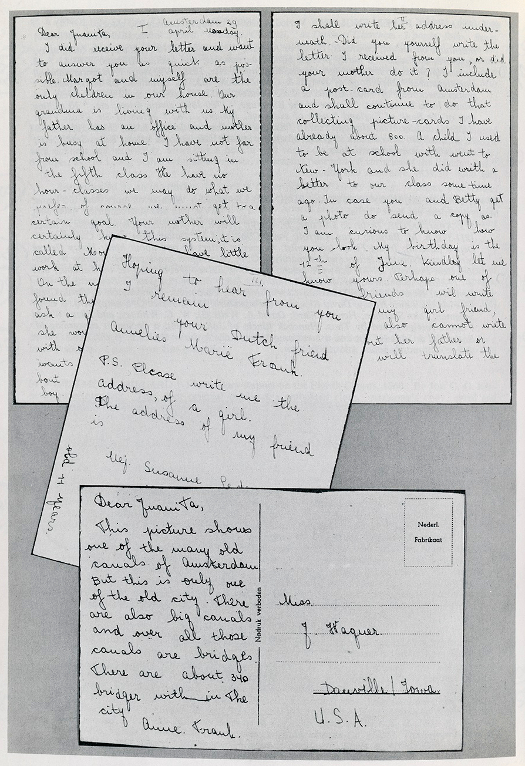 Amsterdam 29
april
Dear Juanita,
I did receive your letter and want
to answer you as quick as pos-
sible. Margot and myself are the
only children in our house. Our
grandma is living with us. My
father has an office and mother
is busy at home. I have not far
from school and I am sitting in
the fifth class. We have no
hour-classes we may do what we
certain goal. Your mother will
certainly this system, it is
called have little
work at
On the
found
ask a
she wo
with
wants
bout
boy
I shall write her address under-
neath. Did you yourself write the
letter I received from you, or did
your mother do it? I include
a post-card from Amsterdam
and shall continue to do that
collecting picture-cards I have
already about 800. A child I used
to be at school with went to
New-York and she did write a
letter to our class some time
ago. In case you and Betty get
a photo do send a copy as
I am curious to know how
you look. My birthday is the
12th of June. Kindly let me
know yours. Perhaps one of
friends will write
my girl friend,
also cannot write
her father or
will translate the
Hoping to hear from you
I remain
your Dutch friend
Annelies Marie Frank
P.S. Please write me the
address, of a girl.
The address of my friend
is
Mej. Susanne
old 11 years.
Dear Juanita,
This picture shows
one of the many old
canals of Amsterdam
But this is only one
of the old city. There
are also big canals
and over all those
canals are bridges
There are about 340
bridges with in the
city
Anne Frank.
Nadruk verboden
Nederl.
Fabrikaat
Miss
J Wagner
Danville / Iowa
U.S.A.